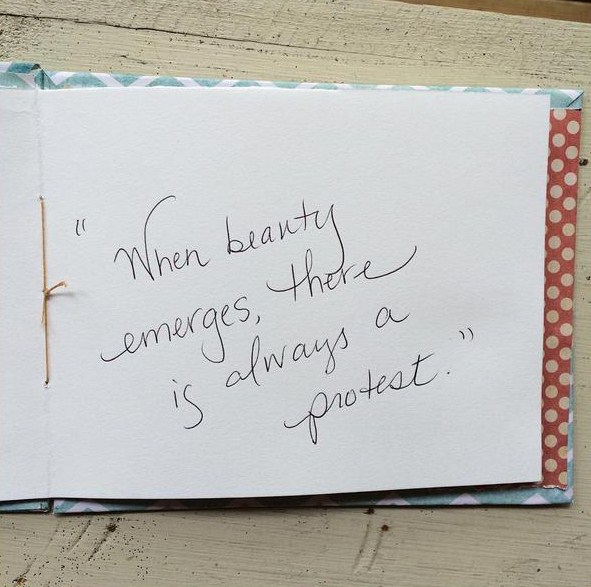 "When beauty
emerges, there
is always a
protest."